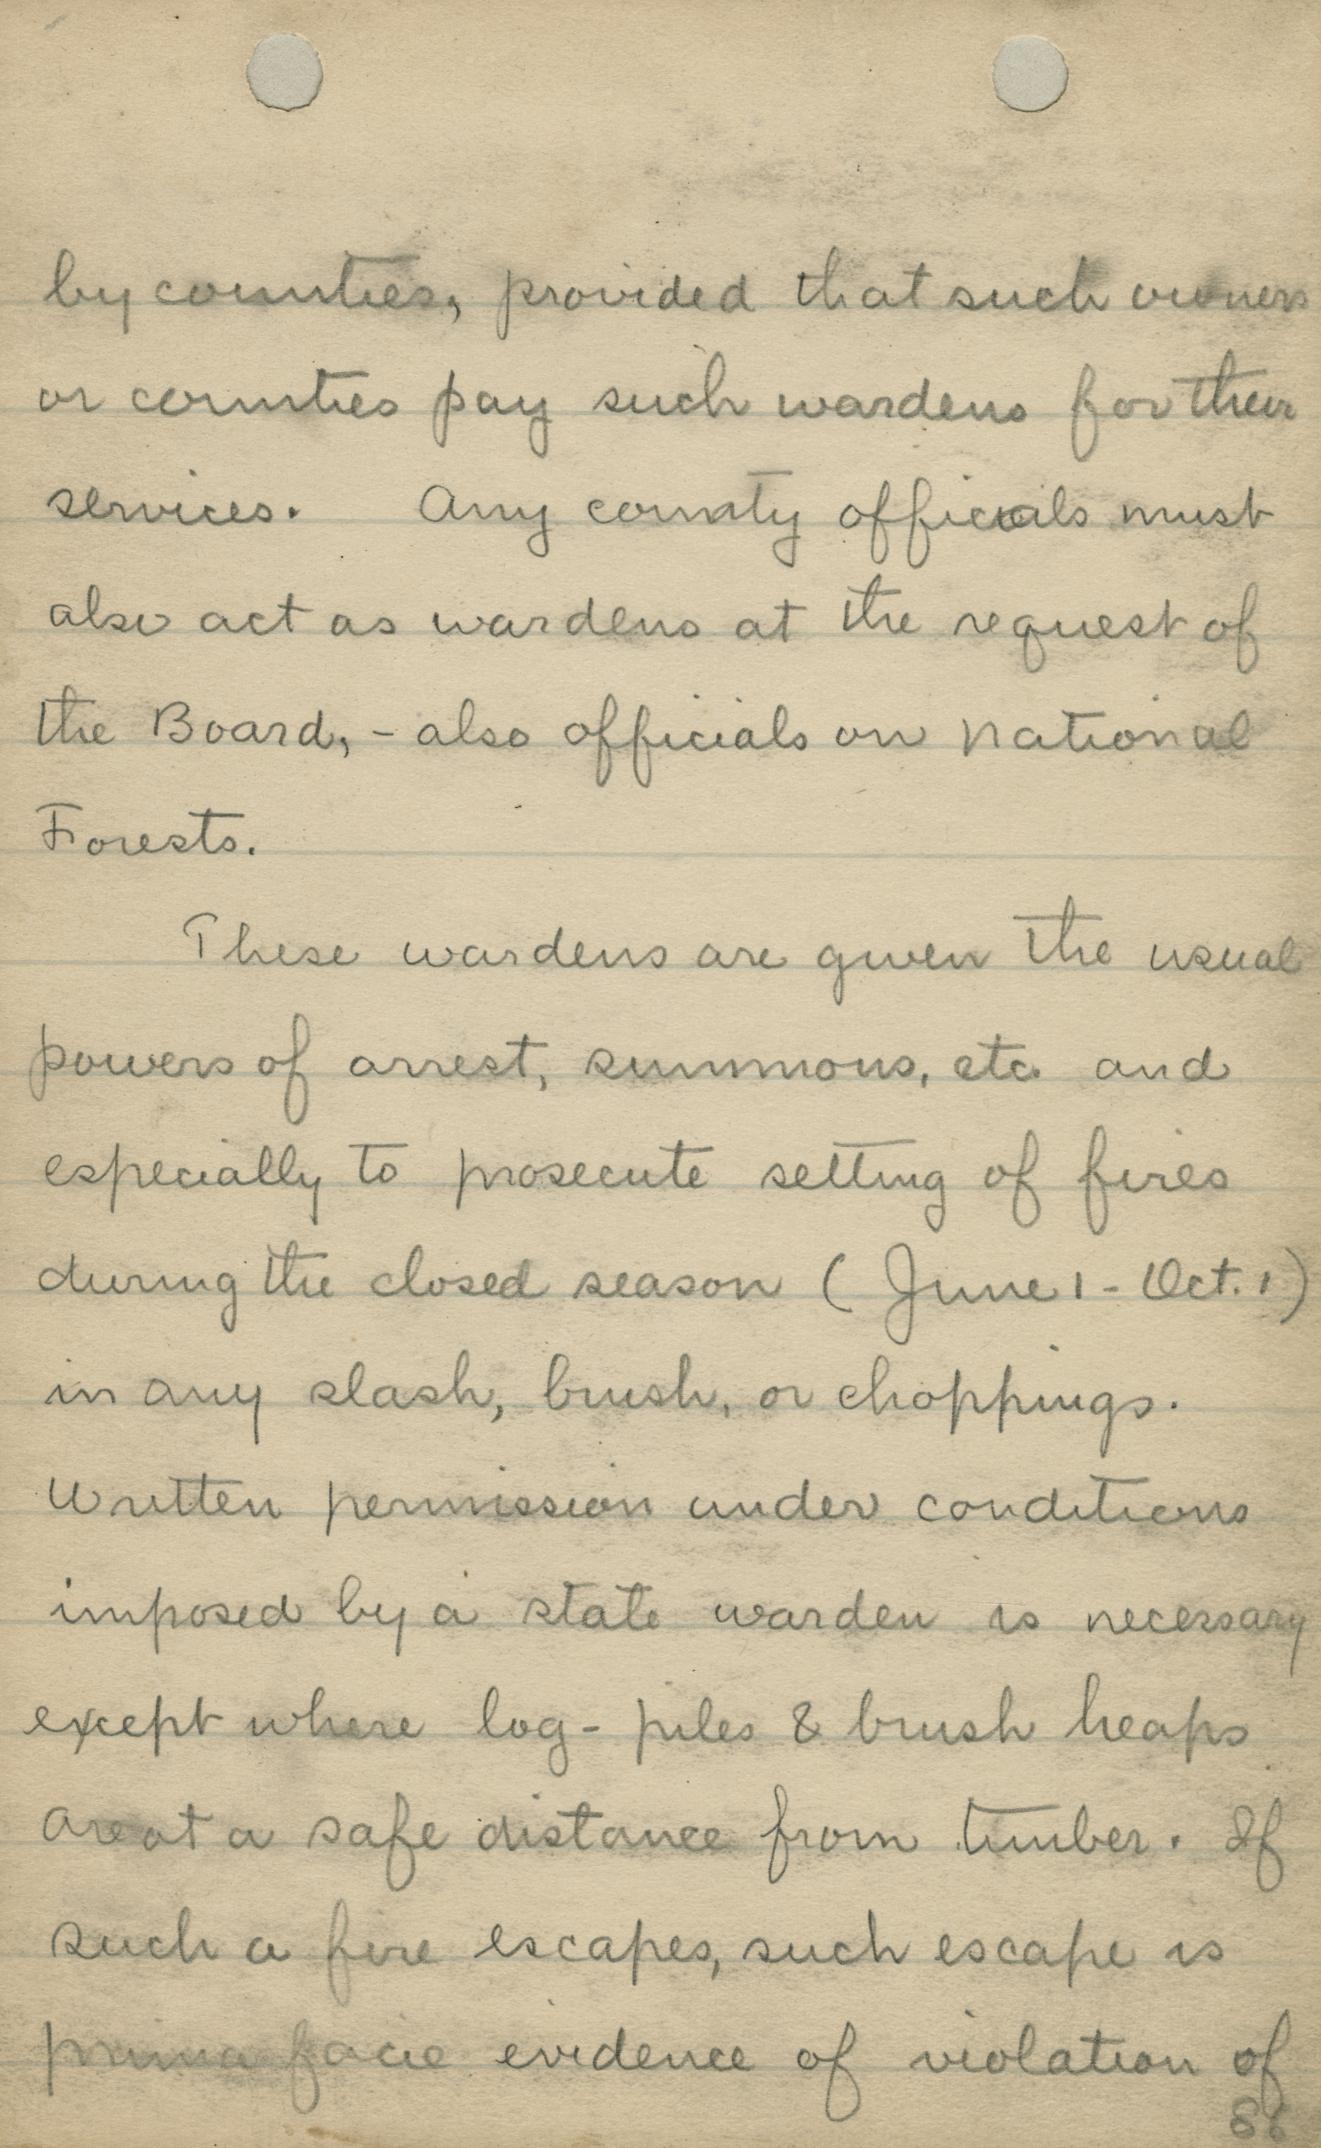 by counties, provided that such owners
or counties pay such wardens for their
services. Any county officials must
also act as wardens at the request of
the Board, - also officials on National
Forests.
These wardens are given the usual
powers of arrest, summons, etc. and
especially to prosecute setting of fires
during the closed season ( June 1 - Oct. 1 )
in any slash, brush, or choppings.
Written permission under conditions
imposed by a state warden is necessary
except where log - piles & brush heaps
are at a safe distance from timber. If
such a fire escapes, such escape is
prima facie evidence of violation of